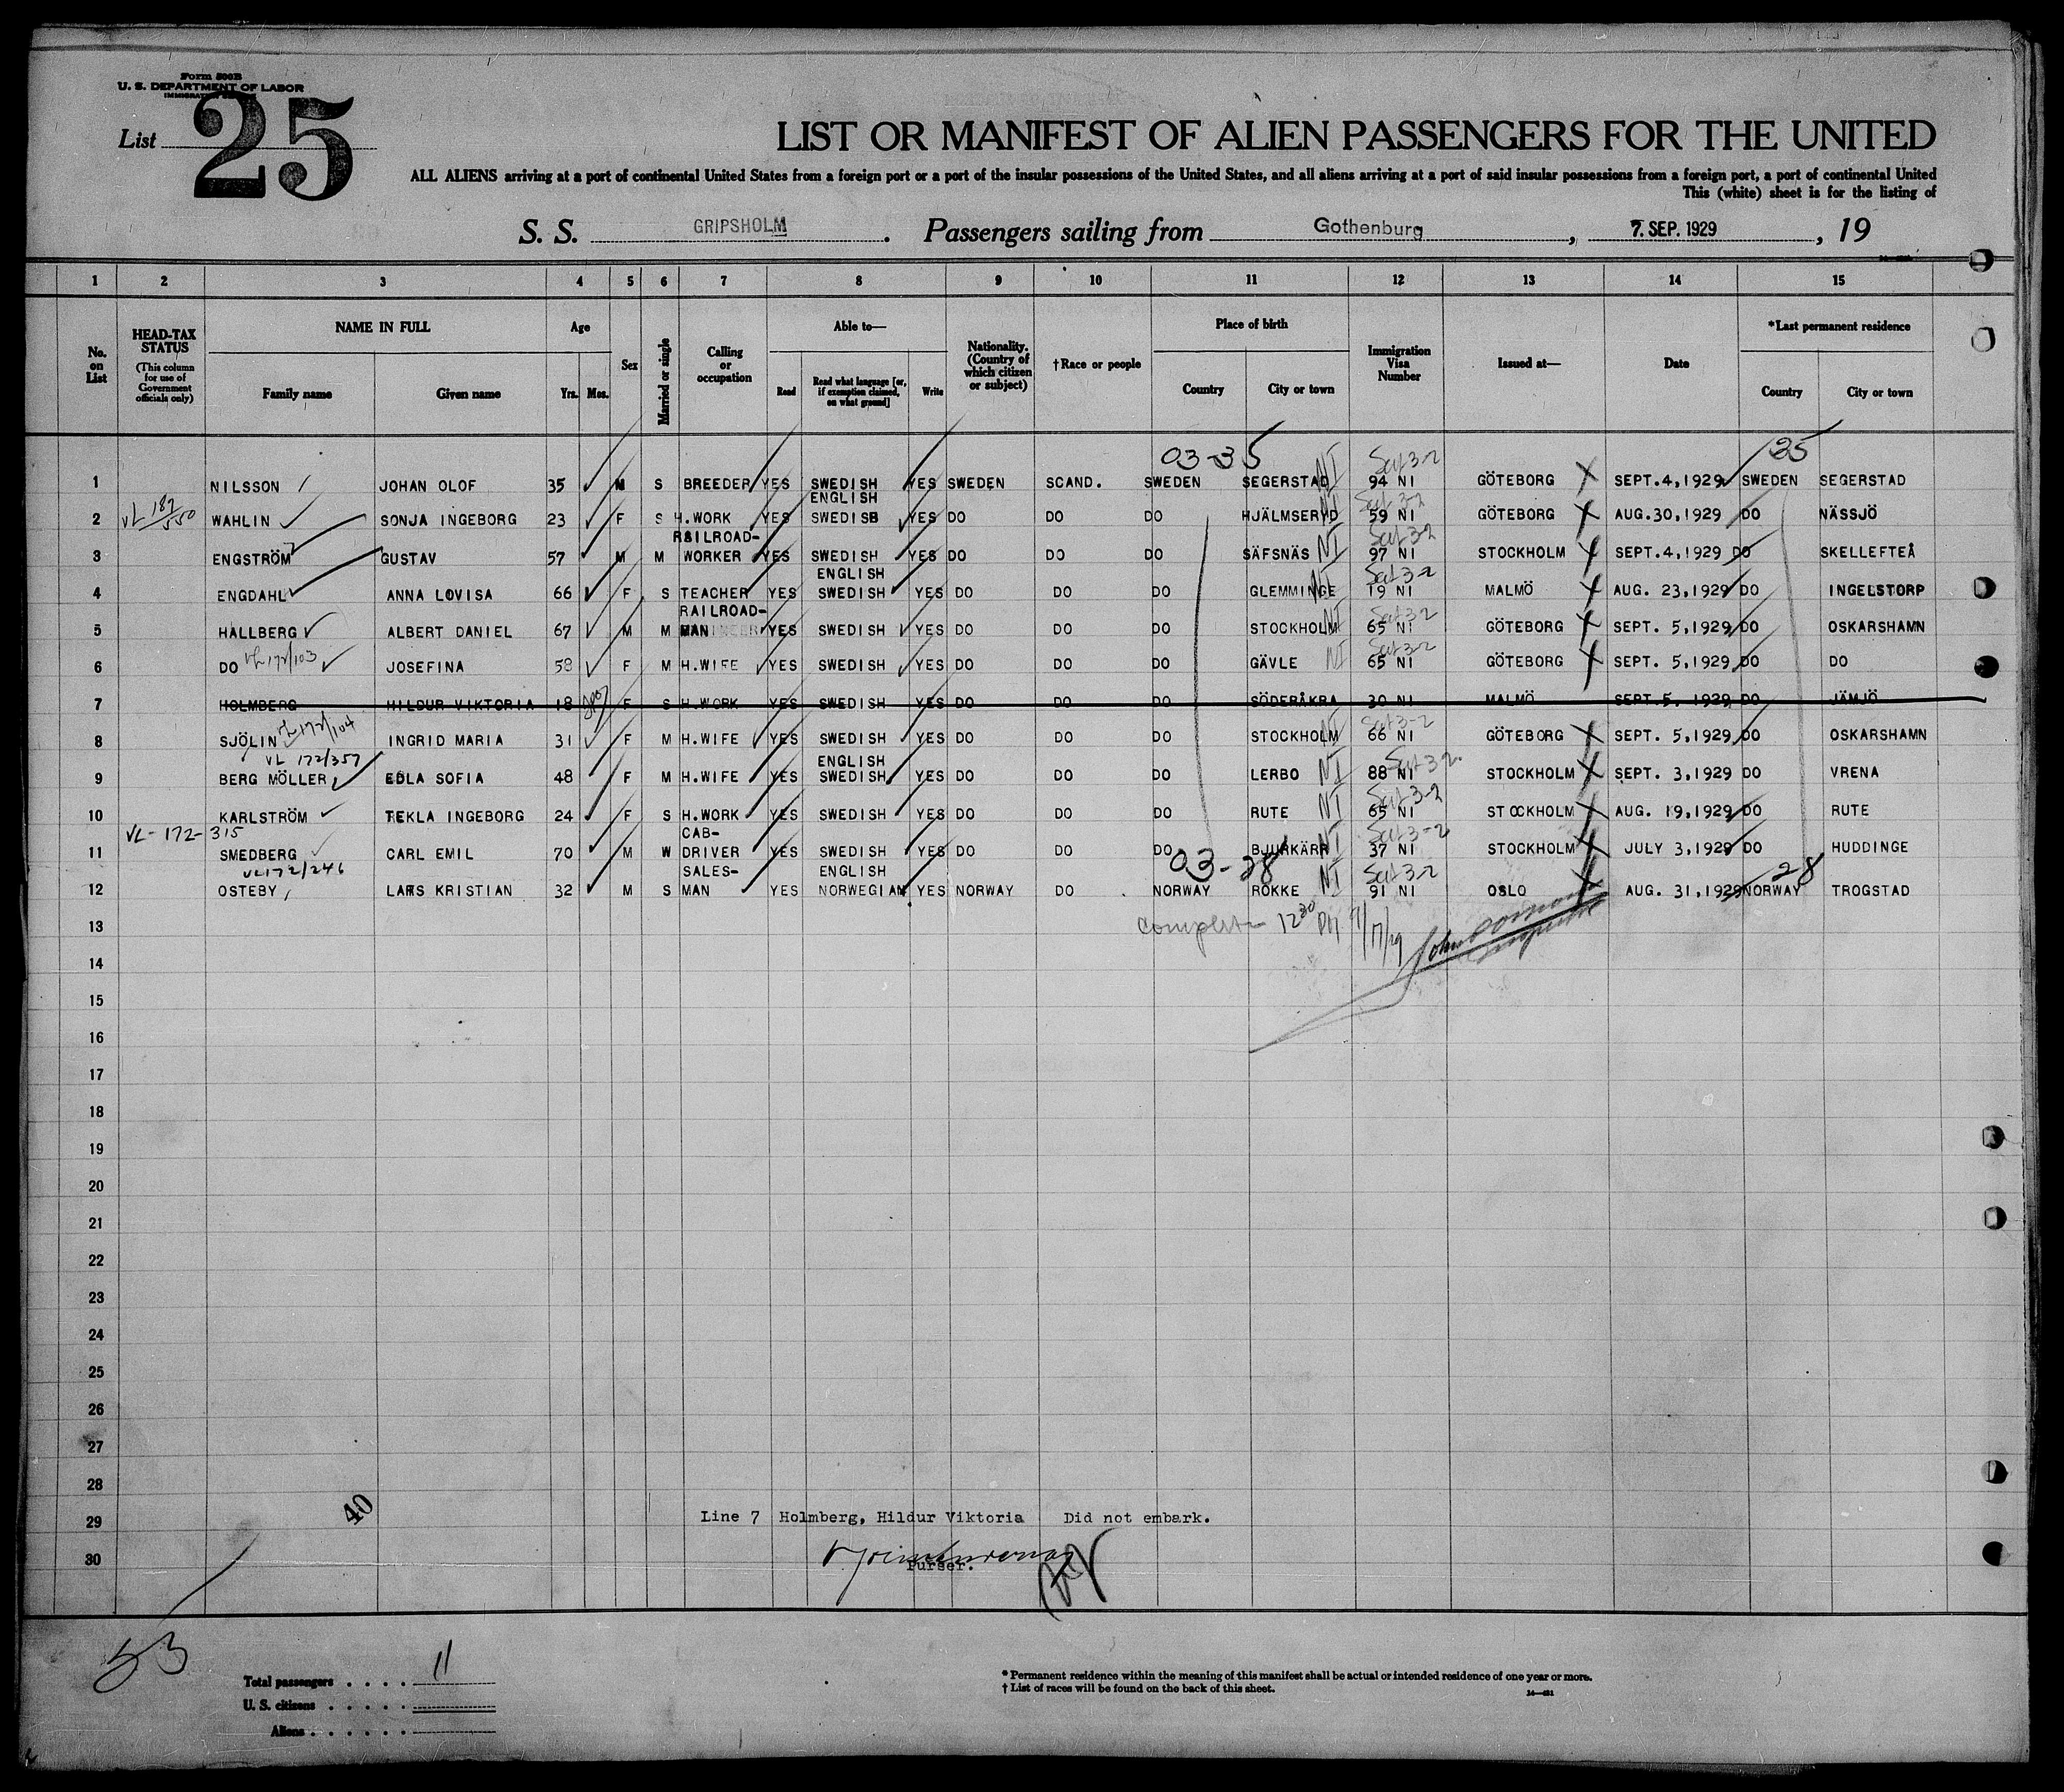 Form 500B
U. S. DEPARTMENT OF LABOR
List 25
LIST OR MANIFEST OF ALIEN PASSENGERS FOR THE UNITED
ALL ALIENS arriving at a port of continental United States from a foreign port or a port of the insular possessions of the United States, and all aliens arriving at a port of said insular possessions from a foreign port, a port of continental United
This (white) sheet is for the listing of
S. S. GRIPSHOLM. Passengers sailing from Gothenburg, 7. SEP. 1929, 19
1 2 3 4 5 6 7 8 9 10 11 12 13 14 15
No. on List
HEAD-TAX STATUS
(This column for use of Government officials only)
NAME IN FULL
Family name Given name
Age
Yrs. Mos.
Sex
Married or single
Calling or occupation
Able to—
Read Read what language [or, if exemption claimed, on what ground] Write
Nationality. (Country of which citizen or subject)
†Race or people
Place of birth
Country City or town
Immigration Visa Number
Issued at—
Date
*Last permanent residence
Country City or town
03-35
1 NILSSON JOHAN OLOF 35 M S BREEDER YES SWEDISH YES SWEDEN SCAND. SWEDEN SEGERSTAD NI 94 NI GÖTEBORG SEPT.4,1929 SWEDEN SEGERSTAD
2 WAHLIN SONJA INGEBORG 23 F S H.WORK YES ENGLISH SWEDISH YES DO DO DO HJÄLMSERYD 59 NI GÖTEBORG AUG.30,1929 DO NÄSSJÖ
3 ENGSTRÖM GUSTAV 57 M M RAILROAD-WORKER YES SWEDISH YES DO DO DO SÄFSNÄS NI 97 NI STOCKHOLM SEPT.4,1929 DO SKELLEFTEÅ
4 ENGDAHL ANNA LOVISA 66 F S TEACHER YES ENGLISH SWEDISH YES DO DO DO GLEMMINGE 19 NI MALMÖ AUG. 23,1929 DO INGELSTORP
5 HALLBERG ALBERT DANIEL 67 M M RAILROAD-MAN YES SWEDISH YES DO DO DO STOCKHOLM 65 NI GÖTEBORG SEPT. 5,1929 DO OSKARSHAMN
6 DO VL 172/103 JOSEFINA 58 F M H.WIFE YES SWEDISH YES DO DO DO GÄVLE NI 65 NI GÖTEBORG SEPT. 5,1929 DO DO
7 HOLMBERG HILDUR VIKTORIA 18 F S H.WORK YES SWEDISH YES DO DO DO SÖDERÅKRA 30 NI MALMÖ SEPT.5. 1929 DO JÄMJÖ
8 SJÖLIN VL 172/104 INGRID MARIA 31 F M H.WIFE YES SWEDISH YES DO DO DO STOCKHOLM 66 NI GÖTEBORG SEPT. 5,1929 DO OSKARSHAMN
VL 172/357
9 BERG MÖLLER EDLA SOFIA 48 F M H.WIFE YES ENGLISH SWEDISH YES DO DO DO LERBO NI 88 NI STOCKHOLM SEPT. 3,1929 DO VRENA
10 KARLSTRÖM TEKLA INGEBORG 24 F S H.WORK YES SWEDISH YES DO DO DO RUTE NI 65 NI STOCKHOLM AUG. 19,1929 DO RUTE
VL-172-315
11 SMEDBERG CARL EMIL 70 M W CAB-DRIVER YES SWEDISH YES DO DO DO BJURKÄRR NI 37 NI STOCKHOLM JULY 3,1929 DO HUDDINGE
VL172/246
03-28 28
12 OSTEBY LARS KRISTIAN 32 M S SALES-MAN YES ENGLISH NORWEGIAN YES NORWAY DO NORWAY ROKKE NI 91 NI OSLO AUG. 31,1929 NORWAY TROGSTAD
13 complete 12 30 PM 9/17/29
14
15
16
17
18
19
20
21
22
23
24
25
26
27
28
29 40 Line 7 Holmberg, Hildur Viktoria Did not embark.
30 Purser.
53
Total passengers 11
U. S. citizens
Aliens
* Permanent residence within the meaning of this manifest shall be actual or intended residence of one year or more.
† List of races will be found on the back of this sheet.